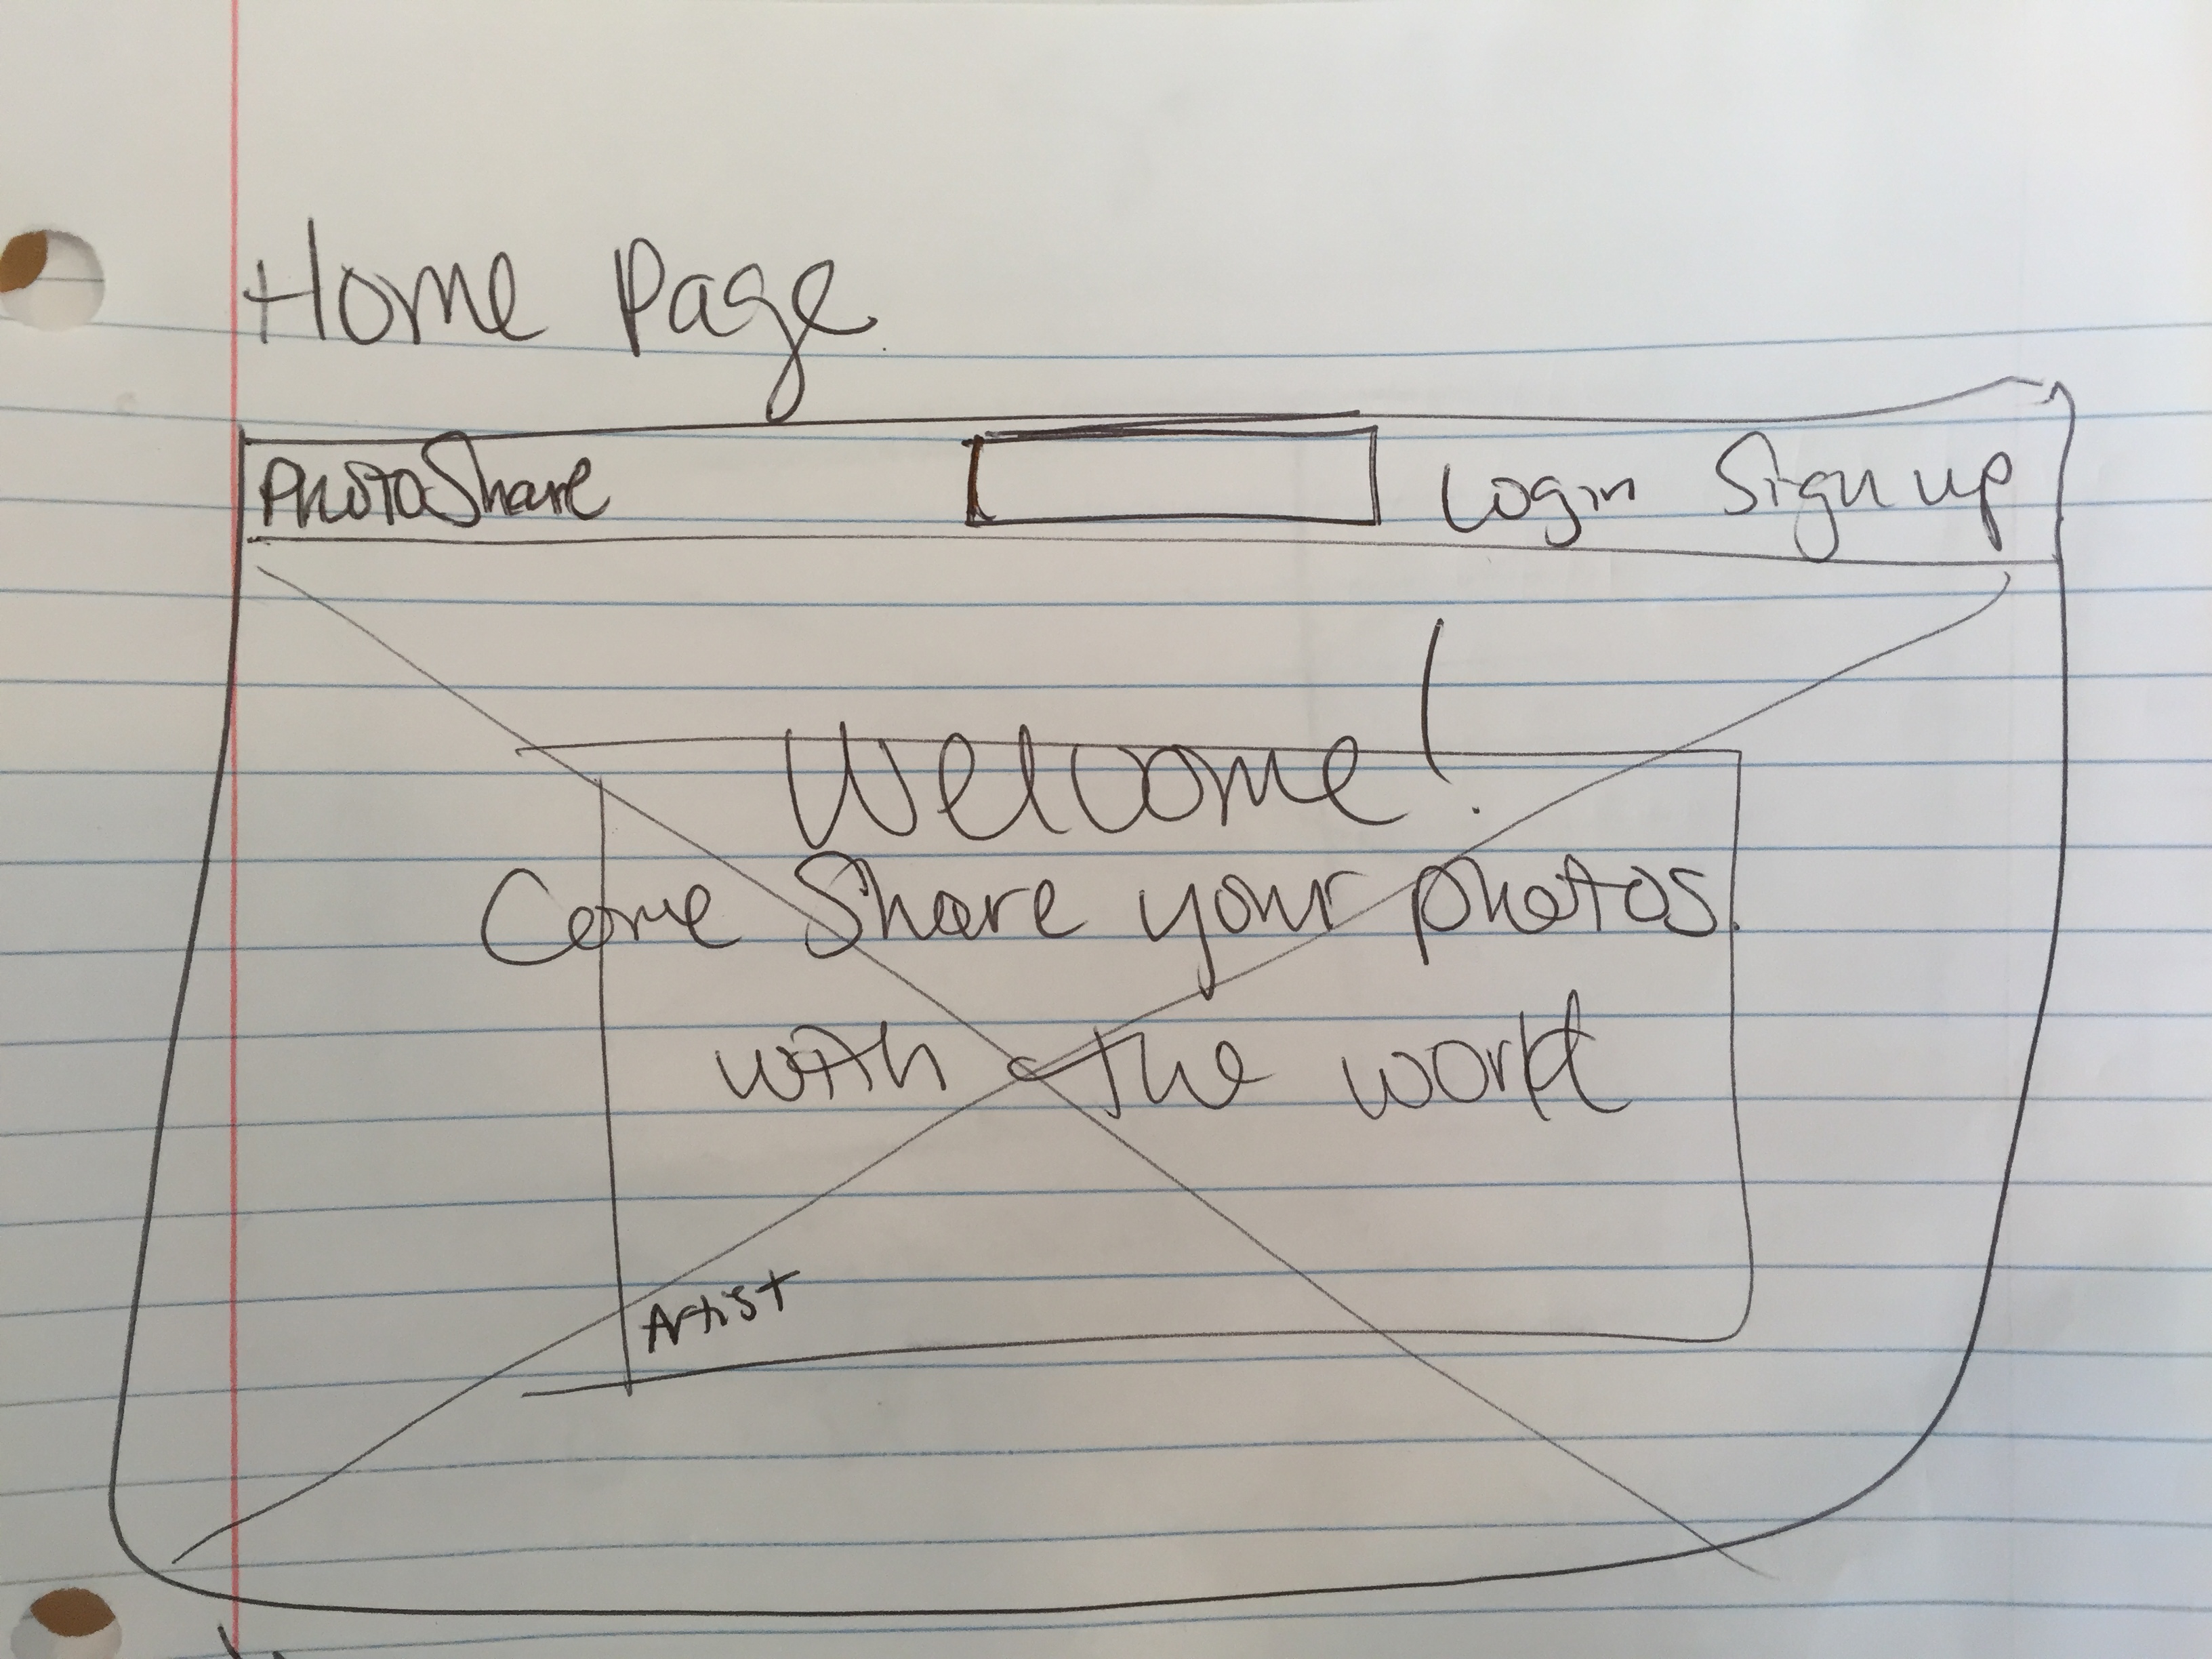 Home Page
PhotoShare Login Sign up
Welcome!
Come Share your photos.
with the world
Artist